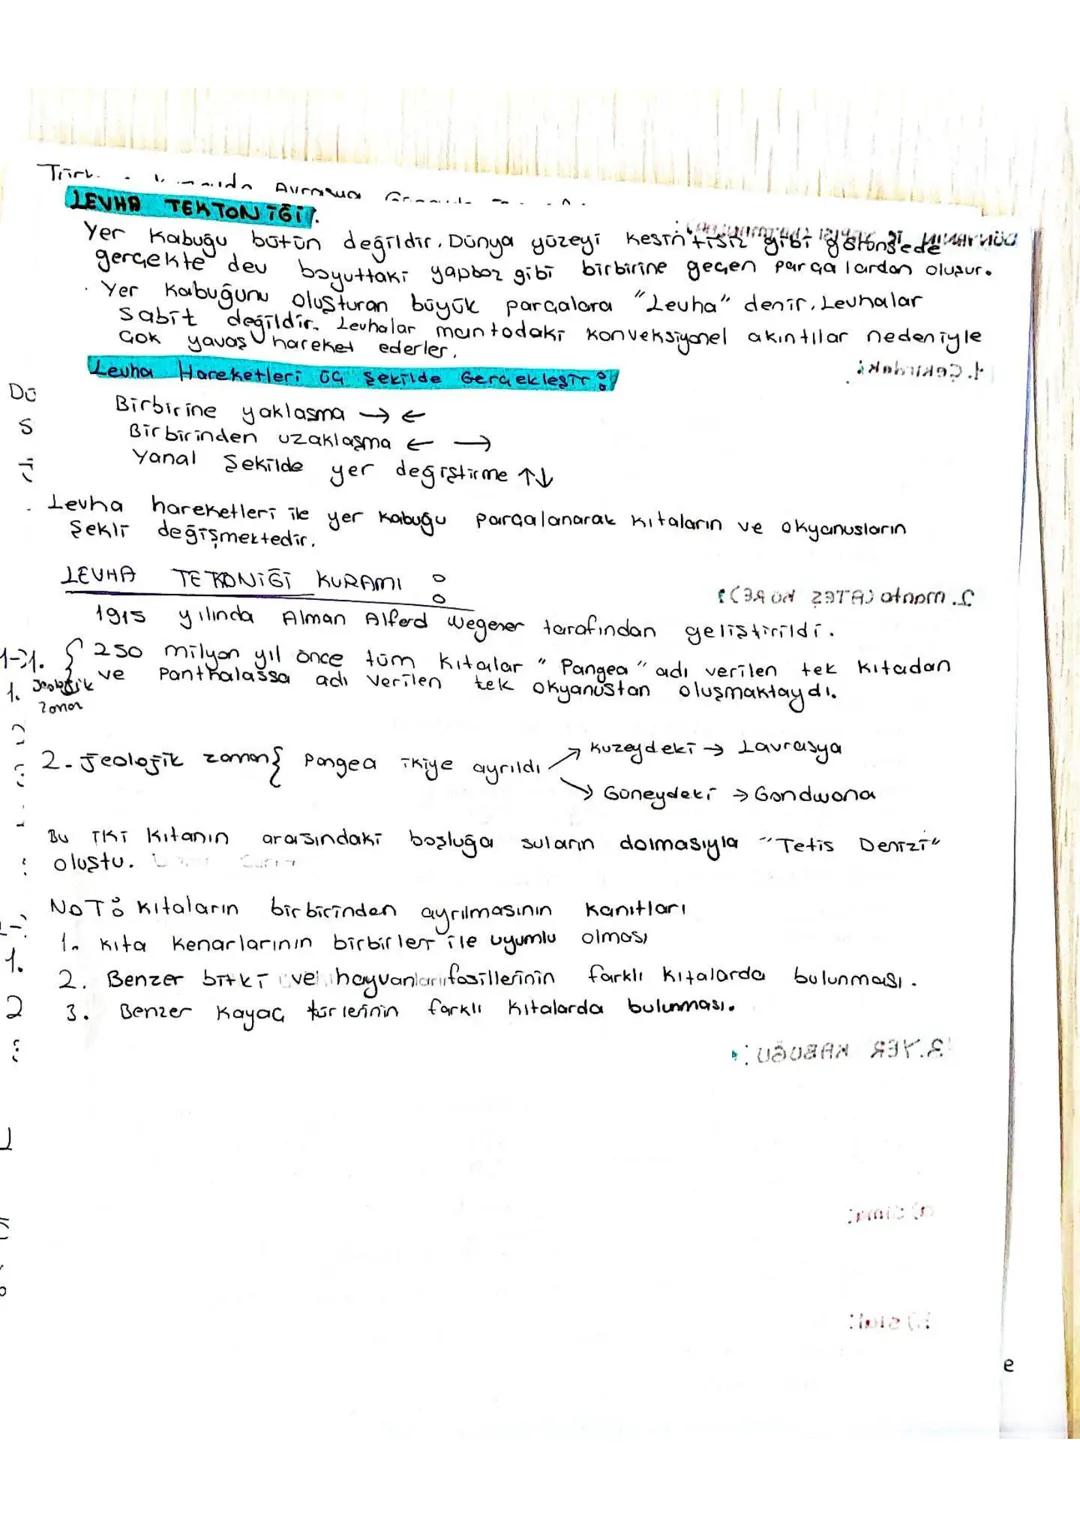 Avrasya
LEVHA TEKTONİĞİ
Yer Kabuğu bütün değildir. Dünya yüzeyi kesintisiz gibi görünsede
gerçekte dev boyuttaki yapboz gibi birbirine geçen parçalardan oluşur.
· Yer Kabuğunu oluşturan büyük parçalara "Levha" denir. Levhalar
Sabit değildir. Levhalar mantodaki konveksiyonel akıntılar nedeniyle
Çok yavaş hareket ederler.
Levha Hareketleri üç şekilde Gerçekleşir:
1. Çekirdek:
Birbirine yaklaşma → ←
Birbirinden uzaklaşma ← →
Yanal Şekilde yer değiştirme ↑↓
. Levha hareketleri ile yer kabuğu parçalanarak kıtaların ve okyanusların
Şekli değişmektedir.
LEVHA TEKONİĞİ KURAMI :
2. manto (ATEŞ KÜRE):
1915 yılında Alman Alferd Wegener tarafından geliştirildi.
1. Jeolojik Zaman { 250 milyon yıl önce tüm kıtalar "Pangea" adı verilen tek kıtadan
ve Panthalassa adı verilen tek okyanustan oluşmaktaydı.
2. Jeolojik zaman { Pangea ikiye ayrıldı → Kuzeydeki → Lavrasya
→ Güneydeki → Gondwana
Bu iki kıtanın arasındaki boşluğa suların dolmasıyla "Tetis Denizi"
oluştu.
NOT: Kıtaların birbirinden ayrılmasının Kanıtları
1. Kıta Kenarlarının birbirleri ile uyumlu olması
2. Benzer bitki ve hayvanları fosillerinin farklı kıtalarda bulunması.
3. Benzer Kayaç türlerinin farklı kıtalarda bulunması.
3. YER KABUĞU:
a) Sima:
b) Sial:
e